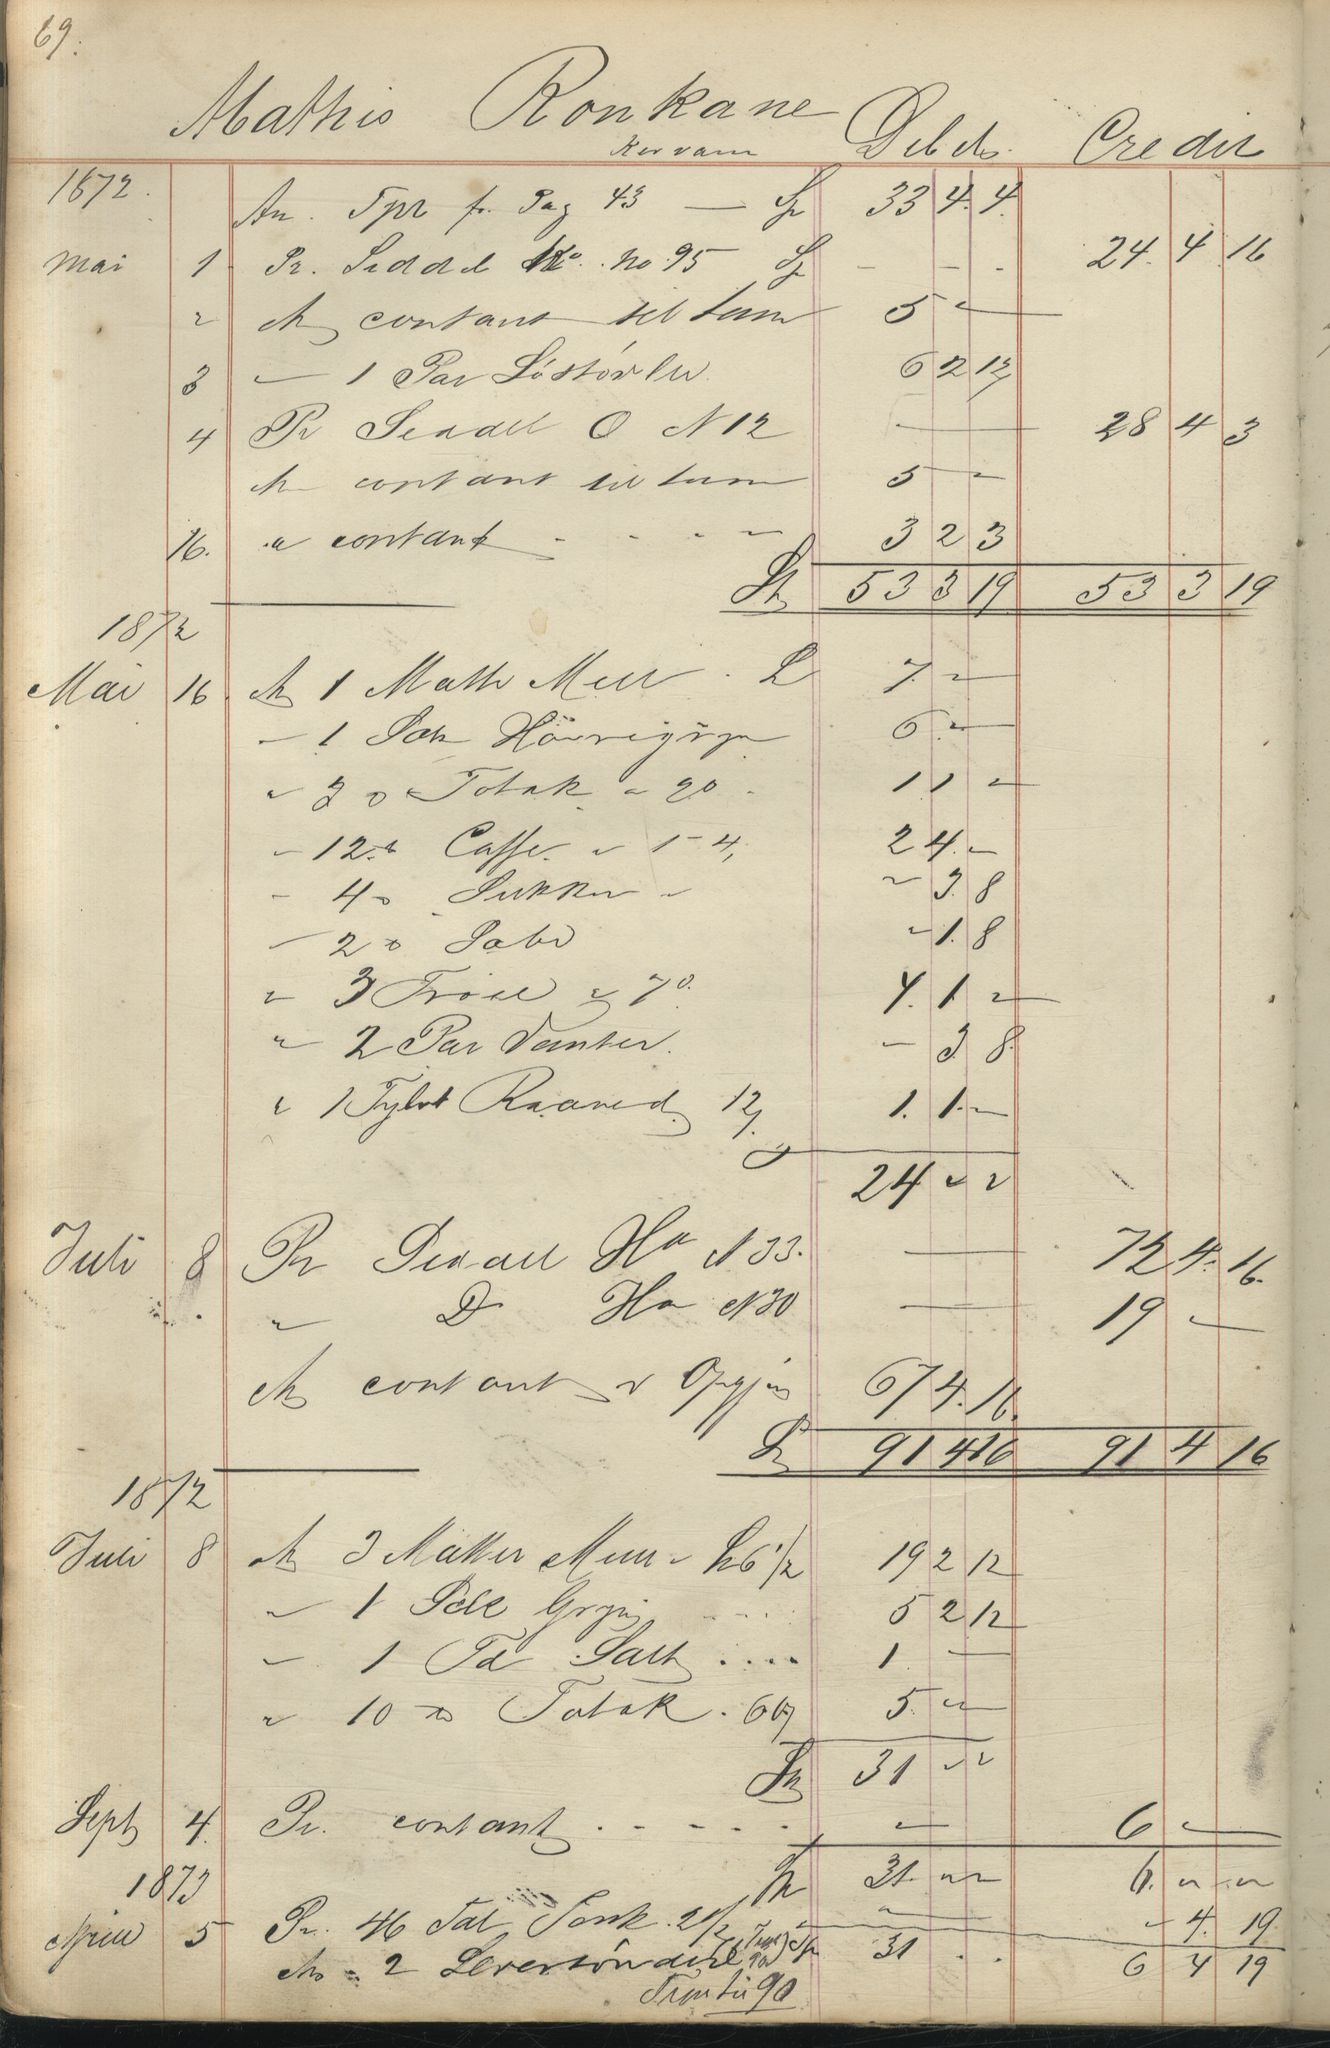 69.
Mathis Ronkane Debet Credit
Kervam
1872. An. Tpr fr. Pag 43 — Sp 33 4. 4.
Mai 1 Pr. Seddel No. 95 Sp - - - 24. 4 16
" An contant til ham 5 "
3 " 1 Par Söstövler 6 2 12
4 Pr Seddel O N 12 — 28 4 3
An contant til ham 5 "
16. " contant - - - - 3 2 3
Sp 53 3 19 53 3 19
1872
Mai 16. An 1 Matte Meel . 7. "
" 1 Sæk Havregryn 6 "
" 3 Tobak " 20 . 1 1 "
" 12 Caffe " 1 - 4, 2 4. "
" 4 Sukker " " 3. 8
" 2 Sæbe " 1. 8
" 3 Tröie " 7 4. 1. "
" 2 Par Vanter. " 3. 8.
" 1 Tylvt Raaved 1. 1. "
24 " "
Juli 8 Pr Seddel Ha N 33. — 72 4. 16.
" D Ha N 30 — 19 "
An contant v Opgjør 67 4. 16.
Sp 91 4 16 91 4 16
1872
Juli 8 An 3 Matter Meel " 6 1/2 19 2 12
" 1 Sæk Gryn .... 5 2 12
" 1 Td Salt .... 1. "
" 10 Tobak . 60 5. "
Sp 31 " "
Sept 4. Pr. contant . - - - - . " 6 "
1873 Sp 31. " " 6. " "
April 5 Pr. 46 Tal Torsk 2 1/2 " " 4. 19
An " 2 Levertönder Sp 31 . . 6 4 19
90